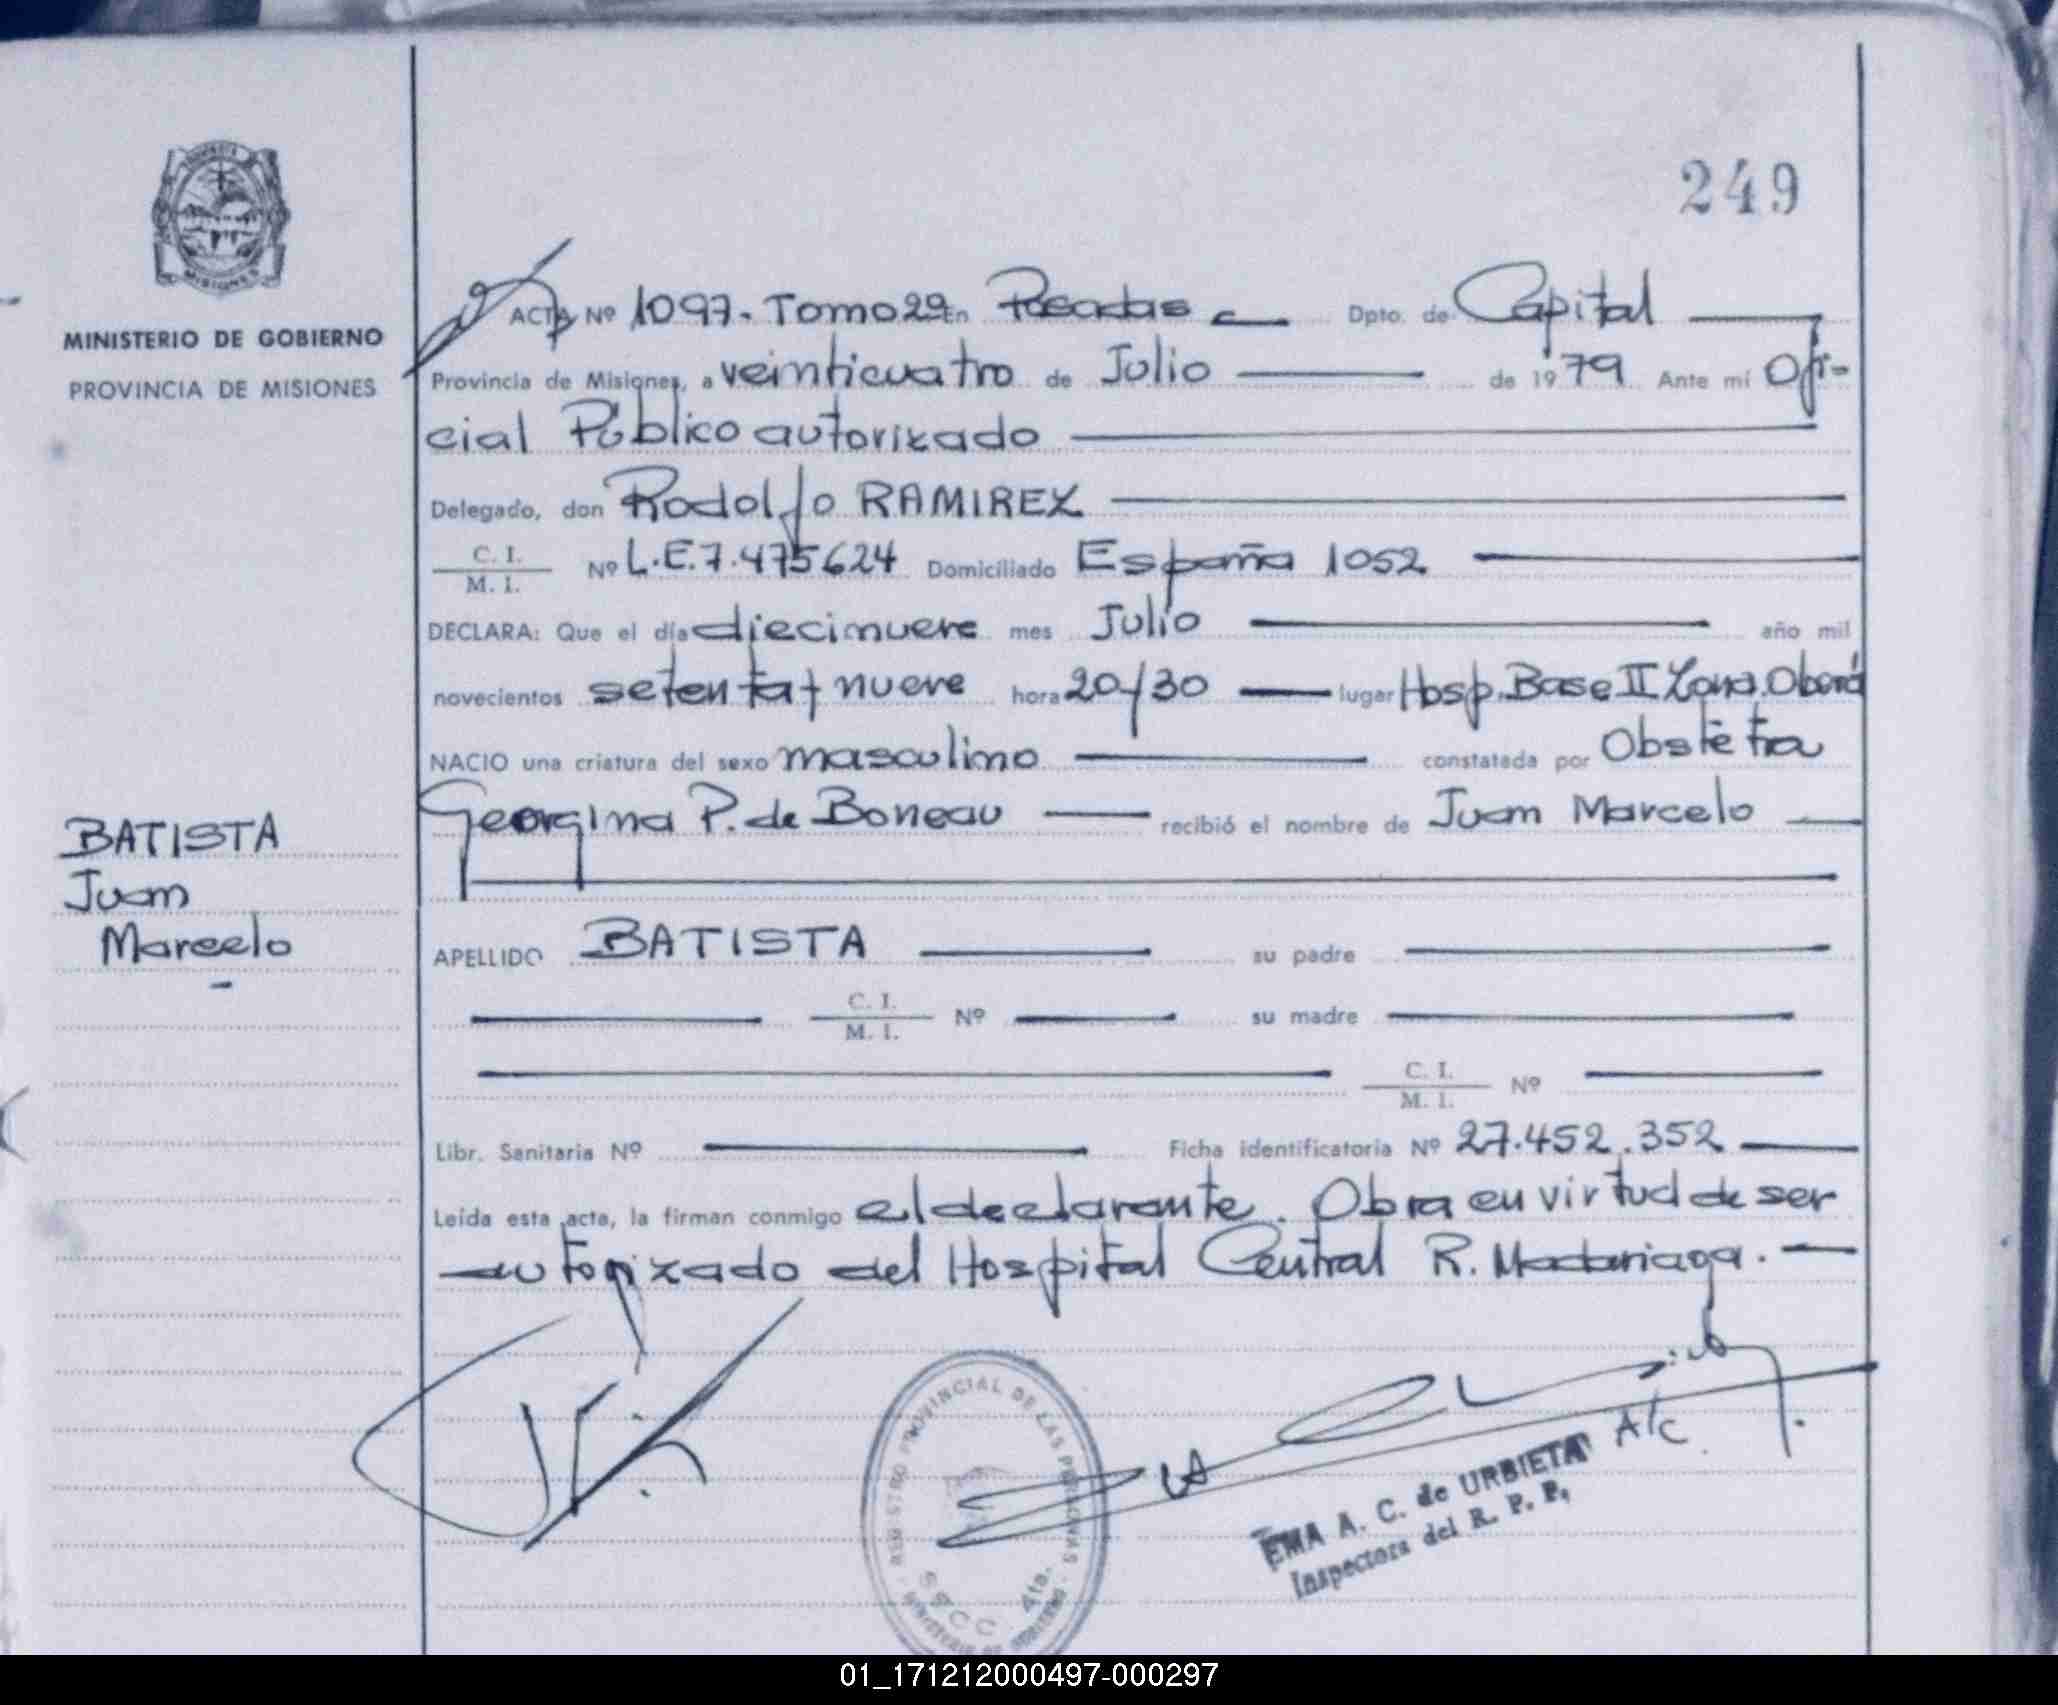 249
MINISTERIO DE GOBIERNO
PROVINCIA DE MISIONES
ACTA Nº 1097. Tomo 29 En Posadas Dpto. de Capital
Provincia de Misiones, a veinticuatro de Julio de 1979 Ante mí Ofi-
cial Público autorizado
Delegado, don Rodolfo RAMIREZ
C. I.
M. I. Nº L.E.7.475624 Domiciliado España 1052
DECLARA: Que el día diecinueve mes Julio año mil
novecientos setenta y nueve hora 20/30 lugar Hosp. Base II Zona. Oberá
NACIO una criatura del sexo masculino constatada por Obstetra
Georgina P. de Boneau recibió el nombre de Juan Marcelo
BATISTA
Juan
Marcelo
APELLIDO BATISTA su padre
C. I.
M. I. Nº su madre
C. I.
M. I. Nº
Libr. Sanitaria Nº Ficha identificatoria Nº 27.452.352
Leída esta acta, la firman conmigo el declarante. Obra en virtud de ser
autorizado del Hospital Central R. Madariaga.
REGISTRO PROVINCIAL DE LAS PERSONAS
MINISTERIO DE GOBIERNO
SECC. 4ta.
A/C.
EMA A. C. de URBIETA
Inspectora del R. P. P.
01_171212000497-000297